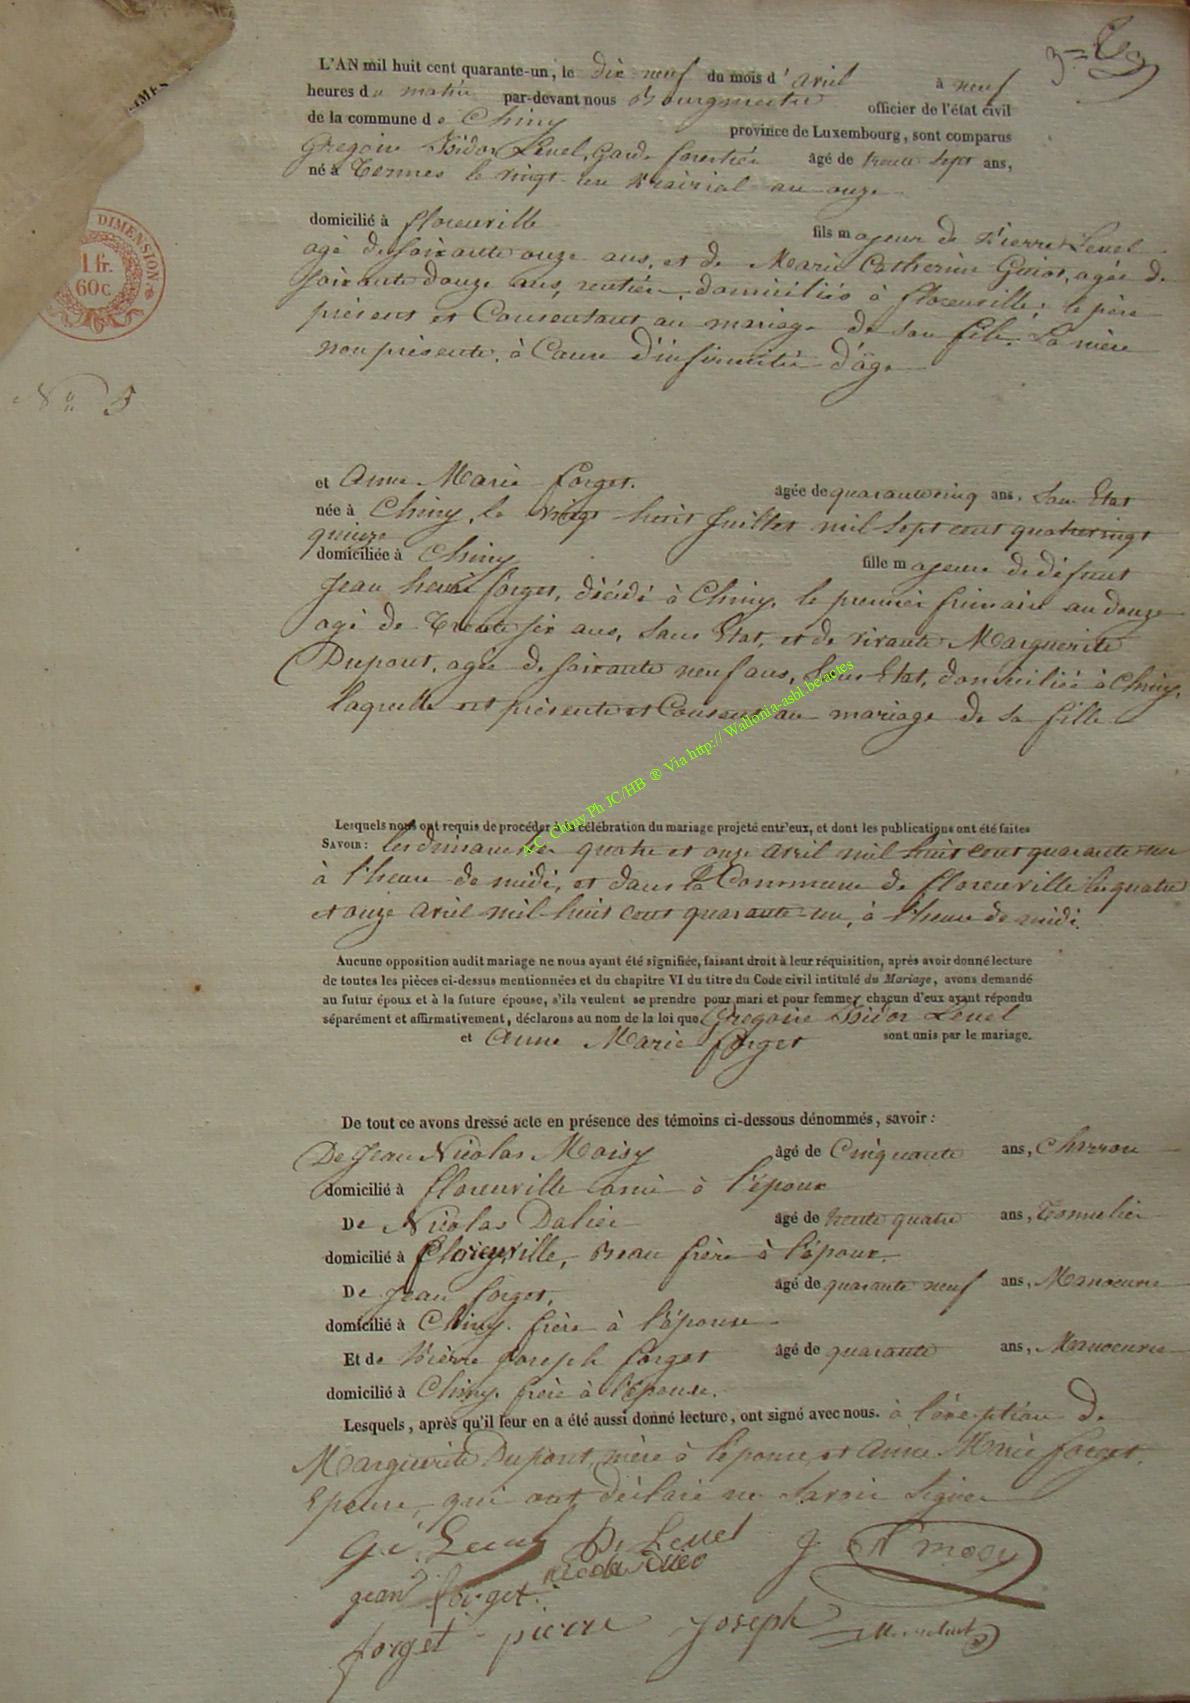 L'AN mil huit cent quarante-un, le dix neuf du mois d'avril à neuf
heures du matin par-devant nous Bourgmestre officier de l'état civil
de la commune de Chiny province de Luxembourg, sont comparus
Gregoire Isidor Lenel, Garde forestier âgé de trente sept ans,
né à Termes le vingt un Prairial an onze
DIMENSION
1 fr.
60c
domicilié à florenville fils majeur de Pierre Lenel
agé de soixante onze ans, et de Marie Catherine Guiot, agée de
soixante douze ans, rentiers, domiciliés à florenville; le père
présent et Consentant au mariage de son fils. La mère
non présente, à Cause d'infirmités d'âge
No 5
et Anne Marie forget. âgée de quarante cinq ans, Sans Etat
née à Chiny, le vingt huit Juillet mil sept cent quatrevingt
quinze
domiciliée à Chiny fille majeure de défunt
Jean henri forget, décédé à Chiny, le premier frimaire an douze
agé de Trente six ans, Sans Etat, et de vivante Marguerite
Dupont, agée de soixante neuf ans, Sans Etat, domiciliée à Chiny,
laquelle est présente et Consent au mariage de sa fille
A.C Chiny Ph JC/HB ® Via http:// Wallonia-asbl.be/actes
Lesquels nous ont requis de procéder à la célébration du mariage projeté entr'eux, et dont les publications ont été faites
SAVOIR: les dimanches quatre et onze avril mil huit cent quarante-un
à l'heure de midi, et dans la Commune de florenville les quatre
et onze avril mil-huit cent quarante-un, à l'heure de midi.
Aucune opposition audit mariage ne nous ayant été signifiée, faisant droit à leur réquisition, après avoir donné lecture
de toutes les pièces ci-dessus mentionnées et du chapitre VI du titre du Code civil intitulé du Mariage, avons demandé
au futur époux et à la future épouse, s'ils veulent se prendre pour mari et pour femme; chacun d'eux ayant répondu
séparément et affirmativement, déclarons au nom de la loi que Gregoire Isidor Lenel
et Anne Marie forget sont unis par le mariage.
De tout ce avons dressé acte en présence des témoins ci-dessous dénommés, savoir:
De Jean Nicolas Moisy âgé de Cinquante ans, Charron
domicilié à florenville ami à l'époux
De Nicolas Dalier âgé de trente quatre ans, Tonnelier
domicilié à florenville, Beau frère à l'époux.
De Jean forget, âgé de quarante neuf ans, Manoeuvre
domicilié à Chiny. frère à l'épouse
Et de Pierre Joseph forget âgé de quarante ans, Manoeuvre
domicilié à Chiny, frère à l'épouse.
Lesquels, après qu'il leur en a été aussi donné lecture, ont signé avec nous. à l'exception de
Marguerite Dupont, mère à l'épouse, et Anne Marie forget,
Epouse, qui ont déclaré ne Savoir Signer
P. Lenel
jean forget
forget pierre joseph